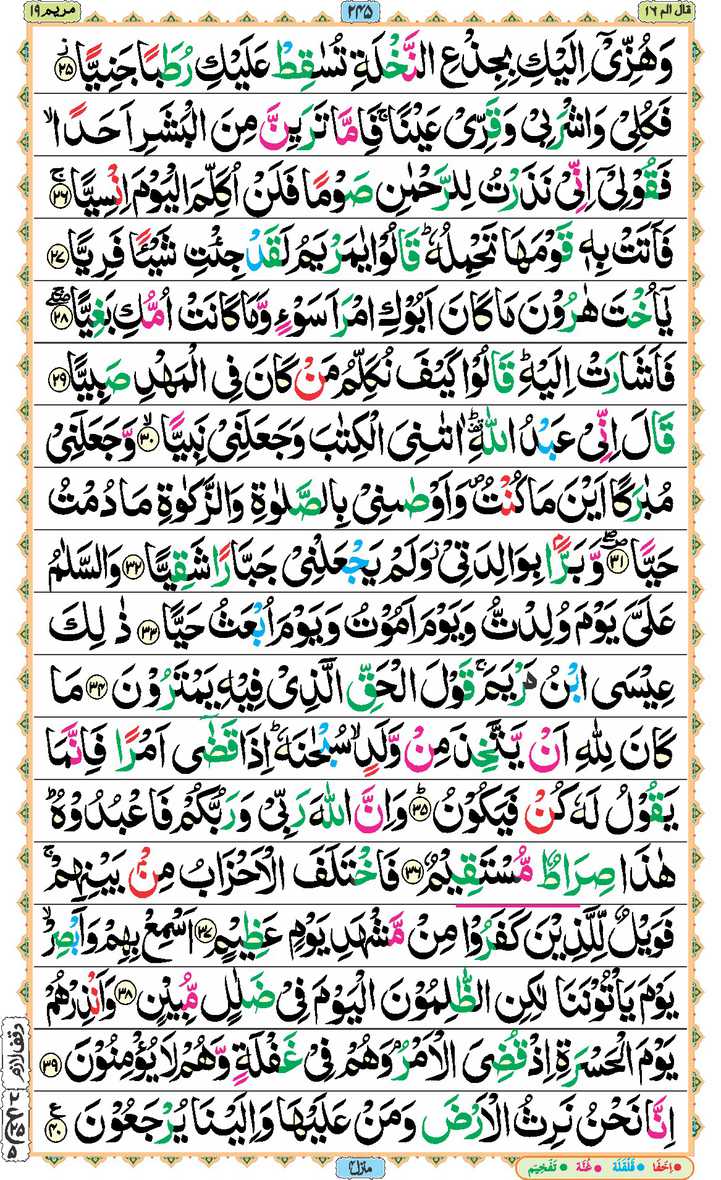 قال الم ١٦
٢٤٥
مريم ١٩
وَهُزِّىْٓ اِلَيْكِ بِجِذْعِ النَّخْلَةِ تُسٰقِطْ عَلَيْكِ رُطَبًا جَنِيًّا ٢٥
فَكُلِىْ وَاشْرَبِىْ وَقَرِّىْ عَيْنًا ۚ فَاِمَّا تَرَيِنَّ مِنَ الْبَشَرِ اَحَدًا ۙ
فَقُوْلِىْٓ اِنِّىْ نَذَرْتُ لِلرَّحْمٰنِ صَوْمًا فَلَنْ اُكَلِّمَ الْيَوْمَ اِنْسِيًّا ۚ ٢٦
فَاَتَتْ بِهٖ قَوْمَهَا تَحْمِلُهٗ ؕ قَالُوْا يٰمَرْيَمُ لَقَدْ جِئْتِ شَيْئًا فَرِيًّا ٢٧
يٰٓاُخْتَ هٰرُوْنَ مَا كَانَ اَبُوْكِ امْرَاَ سَوْءٍ وَّمَا كَانَتْ اُمُّكِ بَغِيًّا ۖۚ ٢٨
فَاَشَارَتْ اِلَيْهِ ؕ قَالُوْا كَيْفَ نُكَلِّمُ مَنْ كَانَ فِى الْمَهْدِ صَبِيًّا ٢٩
قَالَ اِنِّىْ عَبْدُ اللّٰهِ ؕ اٰتٰىنِىَ الْكِتٰبَ وَجَعَلَنِىْ نَبِيًّا ۙ ٣٠ وَّجَعَلَنِىْ
مُبٰرَكًا اَيْنَ مَا كُنْتُ ۪ وَاَوْصٰنِىْ بِالصَّلٰوةِ وَالزَّكٰوةِ مَا دُمْتُ
حَيًّا ۪ۖ ٣١ وَّبَرًّاۢ بِوَالِدَتِىْ ۙ وَلَمْ يَجْعَلْنِىْ جَبَّارًا شَقِيًّا ٣٢ وَالسَّلٰمُ
عَلَىَّ يَوْمَ وُلِدْتُّ وَيَوْمَ اَمُوْتُ وَيَوْمَ اُبْعَثُ حَيًّا ٣٣ ذٰلِكَ
عِيْسَى ابْنُ مَرْيَمَ ۚ قَوْلَ الْحَقِّ الَّذِىْ فِيْهِ يَمْتَرُوْنَ ٣٤ مَا
كَانَ لِلّٰهِ اَنْ يَّتَّخِذَ مِنْ وَّلَدٍ ۙ سُبْحٰنَهٗ ؕ اِذَا قَضٰٓى اَمْرًا فَاِنَّمَا
يَقُوْلُ لَهٗ كُنْ فَيَكُوْنُ ؕ ٣٥ وَاِنَّ اللّٰهَ رَبِّىْ وَرَبُّكُمْ فَاعْبُدُوْهُ ؕ
هٰذَا صِرَاطٌ مُّسْتَقِيْمٌ ٣٦ فَاخْتَلَفَ الْاَحْزَابُ مِنْۢ بَيْنِهِمْ ۚ
فَوَيْلٌ لِّلَّذِيْنَ كَفَرُوْا مِنْ مَّشْهَدِ يَوْمٍ عَظِيْمٍ ٣٧ اَسْمِعْ بِهِمْ وَاَبْصِرْ ۙ
يَوْمَ يَاْتُوْنَنَا لٰكِنِ الظّٰلِمُوْنَ الْيَوْمَ فِىْ ضَلٰلٍ مُّبِيْنٍ ٣٨ وَاَنْذِرْهُمْ
يَوْمَ الْحَسْرَةِ اِذْ قُضِىَ الْاَمْرُ ۘ وَهُمْ فِىْ غَفْلَةٍ وَّهُمْ لَا يُؤْمِنُوْنَ ٣٩
اِنَّا نَحْنُ نَرِثُ الْاَرْضَ وَمَنْ عَلَيْهَا وَاِلَيْنَا يُرْجَعُوْنَ ع ٤٠
وقف لازم
منزل ٤
اِخفَا قَلْقَلَه غُنَّه تَفْخِيْم